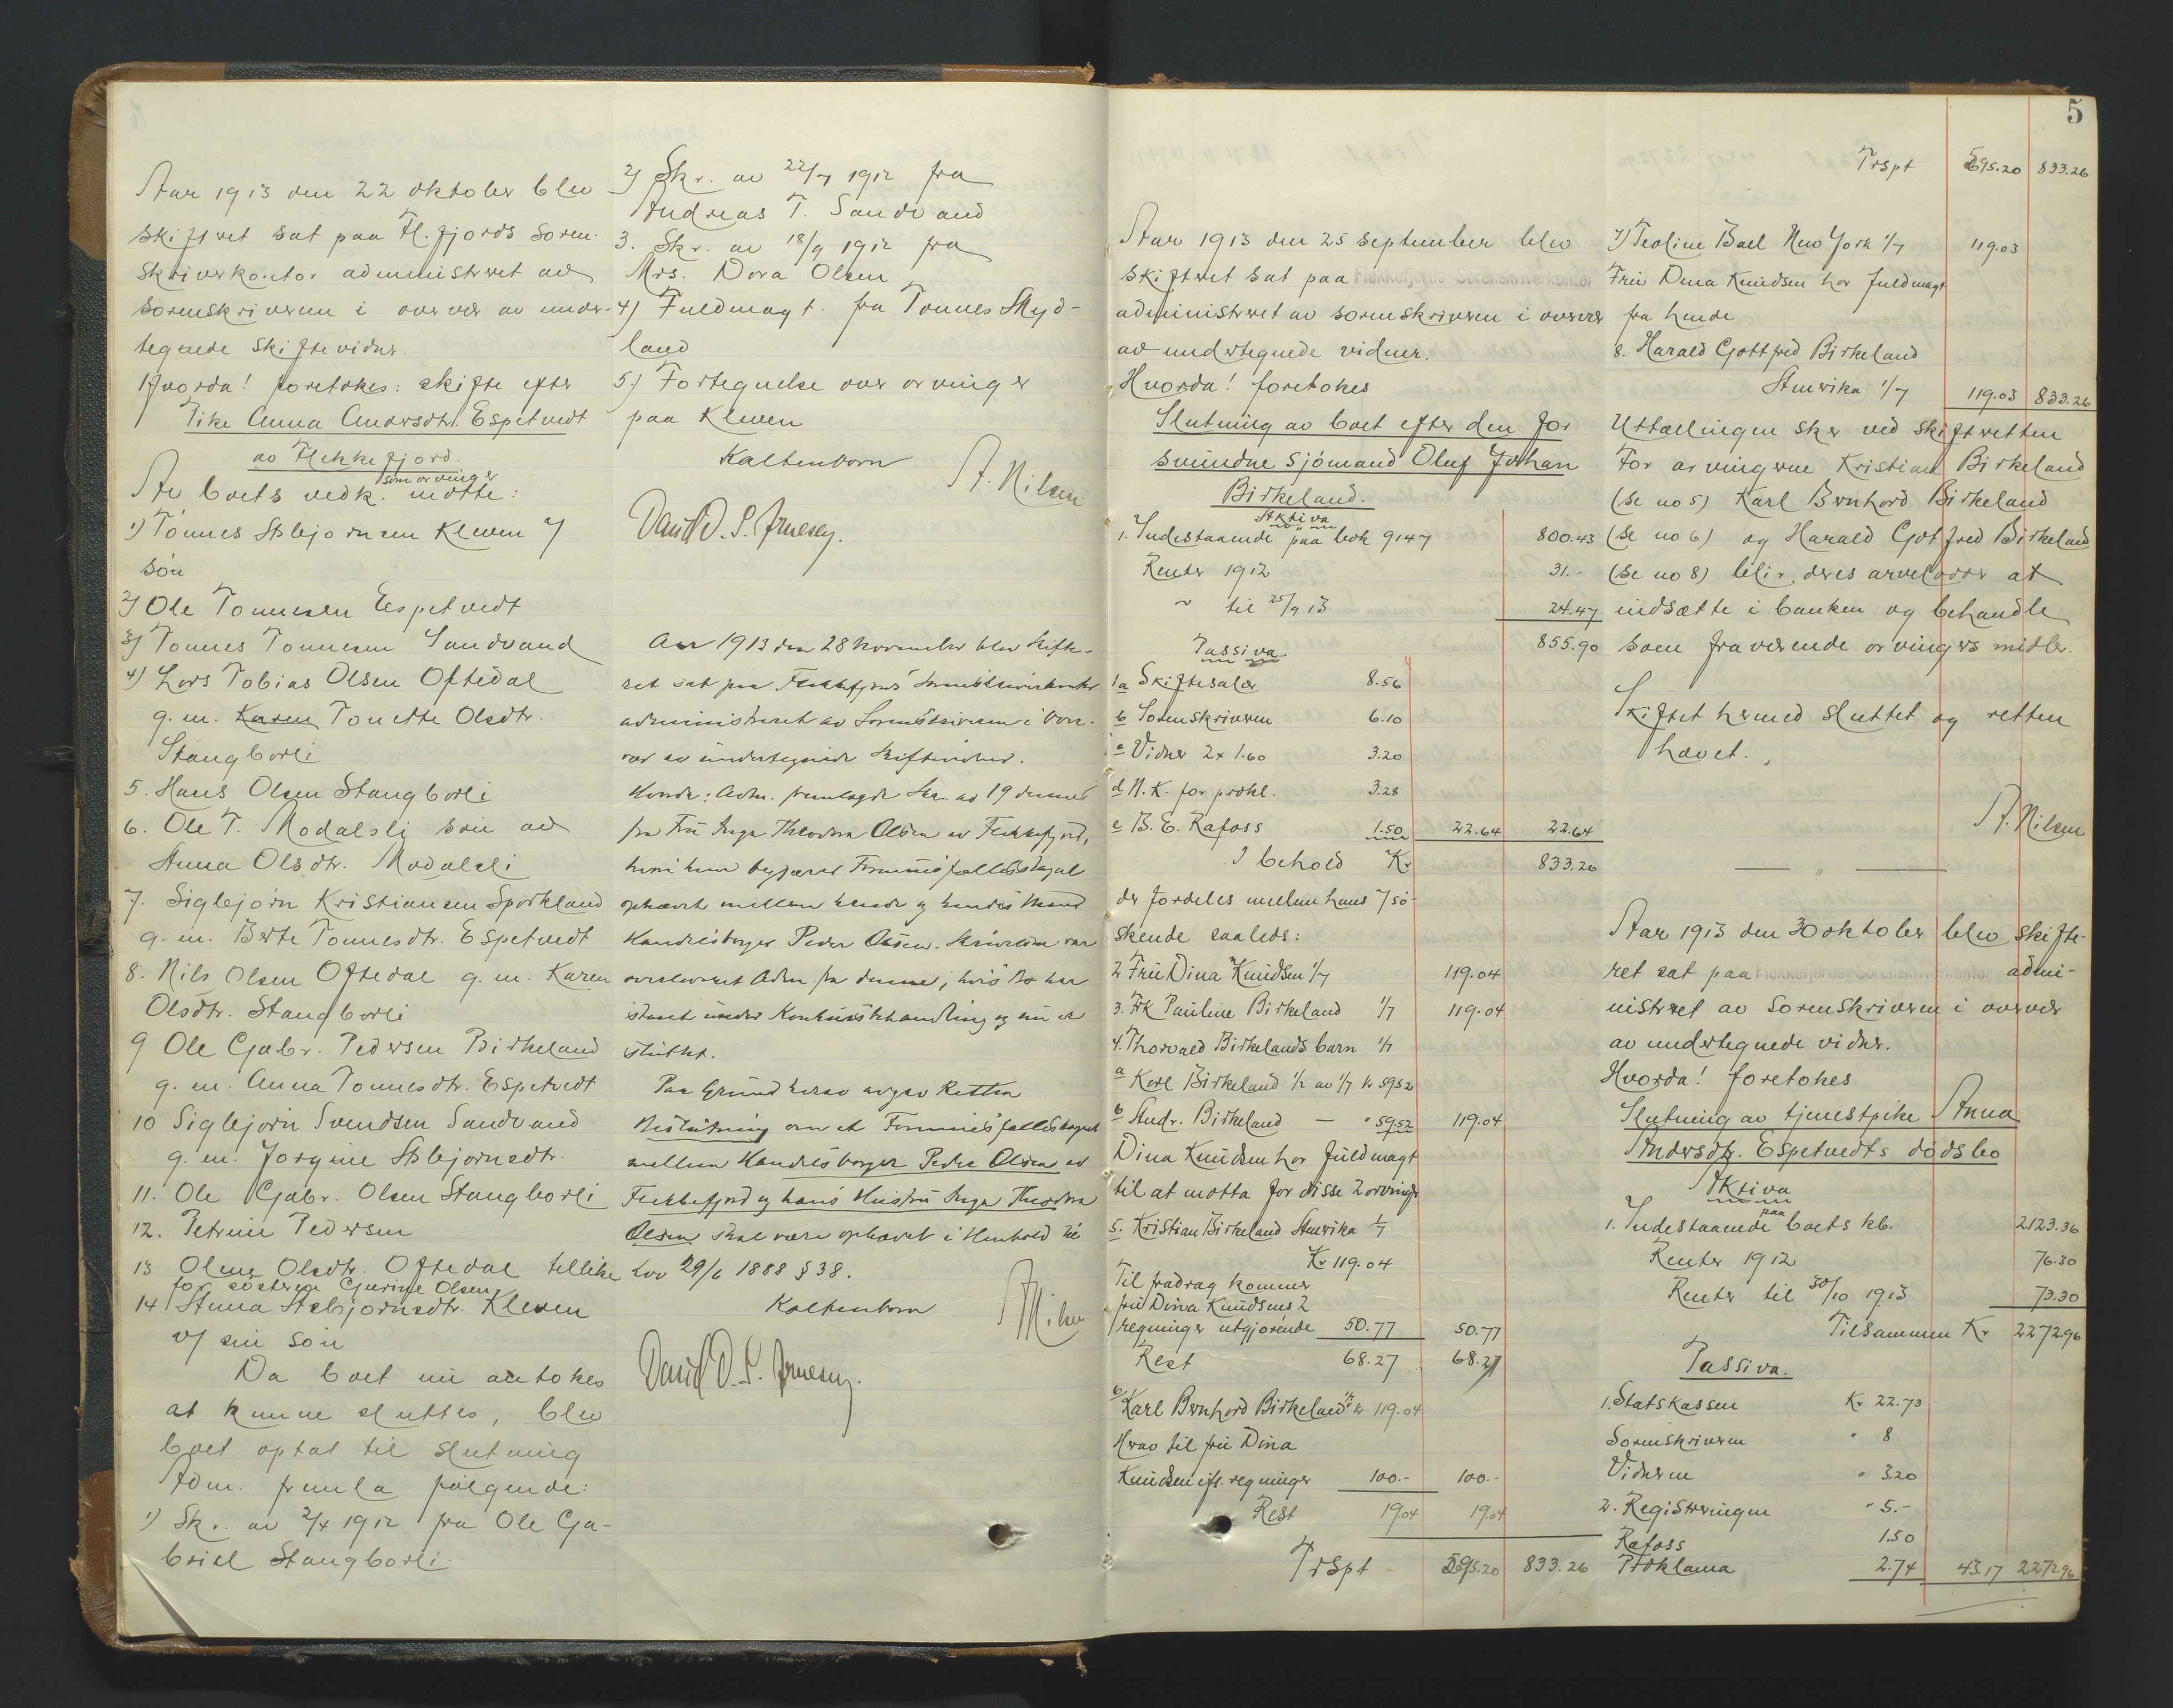 Aar 1913 den 22 oktober blev
skiftret sat paa Fl.fjords Soren-
skriverkontor administreret av
sorenskriveren i overvær av under-
tegnede skiftevidner.
Hvorda! foretokes: skifte efter
Pike Anna Andersdtr. Espetvedt
av Flekkefjord.
som arvinger
Av boets vedk. møtte:
1) Tønnes Asbjørnsen Kleven v/
søn
2) Ole Tønnesen Espetvedt
3) Tønnes Tønnesen Sandvand
4) Lars Tobias Olsen Oftedal
g.m. Karen Tonette Olsdtr.
Stangborli
5. Hans Olsen Stangborli
6. Ole T. Modalsli søn av
Anna Olsdtr. Modalsli
7. Sigbjørn Kristiansen Sporkland
g.m. Berte Tønnesdtr. Espetvedt
8. Nils Olsen Oftedal g.m. Karen
Olsdtr. Stangborli
9 Ole Gabr. Pedersen Birkeland
g.m. Anna Tønnesdtr. Espetvedt
10 Sigbjørn Svendsen Sandvand
g.m. Jørgine Asbjørnsdtr.
11. Ole Gabr. Olsen Stangborli
12. Petrine Pedersen
13 Olene Olsdtr. Oftedal tellike
for søsteren Gurine Olsen
14 Anna Asbjørnsdtr. Kleven
v/ sin søn
Da boet nu antokes
at kunne sluttes, blev
boet optat til slutning
Adm. fremla følgende:
1) Skr. av 2/4 1912 fra Ole Ga-
briel Stangborli.
2) Skr. av 22/7 1912 fra
Andreas T. Sandvand
3. Skr. av 18/9 1912 fra
Mrs. Dora Olsen
4) Fuldmagt fra Tønnes Skyd-
land
5) Fortegnelse over arvinger
paa Kleven
Kaltenborn
A. Nilsen
David D. S.
Aar 1913 den 28 November blev Skifte-
ret sat paa Flekkefjords Sorenskriverkontor
administreret av Sorenskriveren i Over-
vær av undertegnede Skiftevidner.
Hvorda: Adm. fremlagde Skr. av 19 dennes
fra Fru Inga Theodora Olsen av Flekkefjord,
hvori hun begjærer Formuesfællesskapet
ophævet mellem hende og hendes Mand
Handelsborger Peder Olsen. Skrivelsen var
overleveret Adm. fra denne, hvis Bo har
staaet under Konkursbehandling og nu er
sluttet.
Paa Grund herav avgav Retten
Beslutning om at Formuesfællesskapet
mellem Handelsborger Peder Olsen av
Flekkefjord og hans Hustru Inga Theodora
Olsen skal være ophævet i Henhold til
Lov 29/6 1888 § 38.
Kaltenborn
A Nilsen
David D. S.
5
Aar 1913 den 25 september blev
skiftret sat paa Flekkefjords Sorenskriverkontor
administreret av sorenskriveren i overvær
av undertegnede vidner.
Hvorda! foretokes
Slutning av boet efter den for
svundne sjømand Oluf Johan
Birkeland.
Aktiva
1. Indestaaende paa bok 9147 800.43
Renter 1912 31.-
~ til 25/9 13 24.47
855.90
Passiva
1a Skiftesalær 8.56
b Sorenskriveren 6.10
c Vidner 2x1.60 3.20
d N.K. for prokl. 3.28
e B.E. Rafoss 1.50 22.64 22.64
I behold Kr 833.26
der fordeles mellem hans 7 sø-
skende saaleds:
2 Fru Dina Knudsen 1/7 119.04
3. Frk Pauline Birkeland 1/7 119.04
4. Thorvald Birkelands barn 1/7
a Karl Birkeland 1/2 av 1/7 kr 59.52
b Andr. Birkeland — " 59.52 119.04
Dina Knudsen har fuldmagt
til at motta for disse 2 arvinger
5. Kristian Birkeland Amerika 1/7
Kr 119.04
Til fradrag kommer
fru Dina Knudsens 2
regninger utgjørende 50.77 50.77
Rest 68.27 68.27
6 Karl Bernhard Birkeland 1/7 kr 119.04
Herav til fru Dina
Knudsen ifl. regninger 100.- 100.-
Rest 19.04 19.04
Trspt 595.20 833.26
Trspt 595.20 833.26
7) Teoline Bael New York 1/7 119.03
Fru Dina Knudsen har fuldmagt
fra hende
8. Harald Gottfred Birkeland
Amerika 1/7 119.03 833.26
Uttællingen sker ved skifteretten
For arvingerne Kristian Birkeland
(se no 5) Karl Bernhard Birkeland
(se no 6) og Harald Gotfred Birkeland
(se no 8) blir deres arvelodder at
indsætte i banken og behandle
som fraværende arvingers midler.
Skiftet hermed sluttet og retten
hævet.
A. Nilsen
— " —
Aar 1913 den 30 oktober blev skifte-
ret sat paa Flekkefjords Sorenskriverkontor admi-
nistreret av Sorenskriveren i overvær
av undertegnede vidner.
Hvorda! foretokes
Slutning av tjenestpike Anna
Andersdtr. Espetvedts dødsbo
Aktiva
1. Indestaaende paa boets kb. 2123.36
Renter 1912 76.30
Renter til 30/10 1913 73.30
Tilsammen Kr 2272.96
Passiva.
1. Statskassen Kr 22.73
Sorenskriveren " 8
Vidnerne " 3.20
2. Registreringen " 5.-
Rafoss 1.50
Proklama 2.74 43.17 2272.96